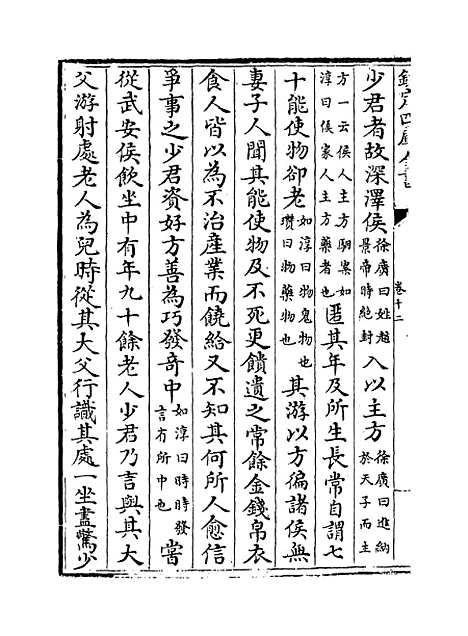 欽定四庫全書
卷十二
十一
少君者故深澤侯徐廣曰姓趙景帝時絶封入以主方徐廣曰進納於天子而主
方一云侯人主方駰案如淳曰侯家人主方藥者也匿其年及所生長常自謂七
十能使物卻老如淳曰物鬼物也瓚曰物藥物也其游以方徧諸侯無
妻子人聞其能使物及不死更饋遺之常餘金錢帛衣
食人皆以為不治産業而饒給又不知其何所人愈信
爭事之少君資好方善為巧發奇中如淳曰時時發言有所中也嘗
從武安侯飲坐中有年九十餘老人少君乃言與其大
父游射處老人為兒時從其大父行識其處一坐盡驚少